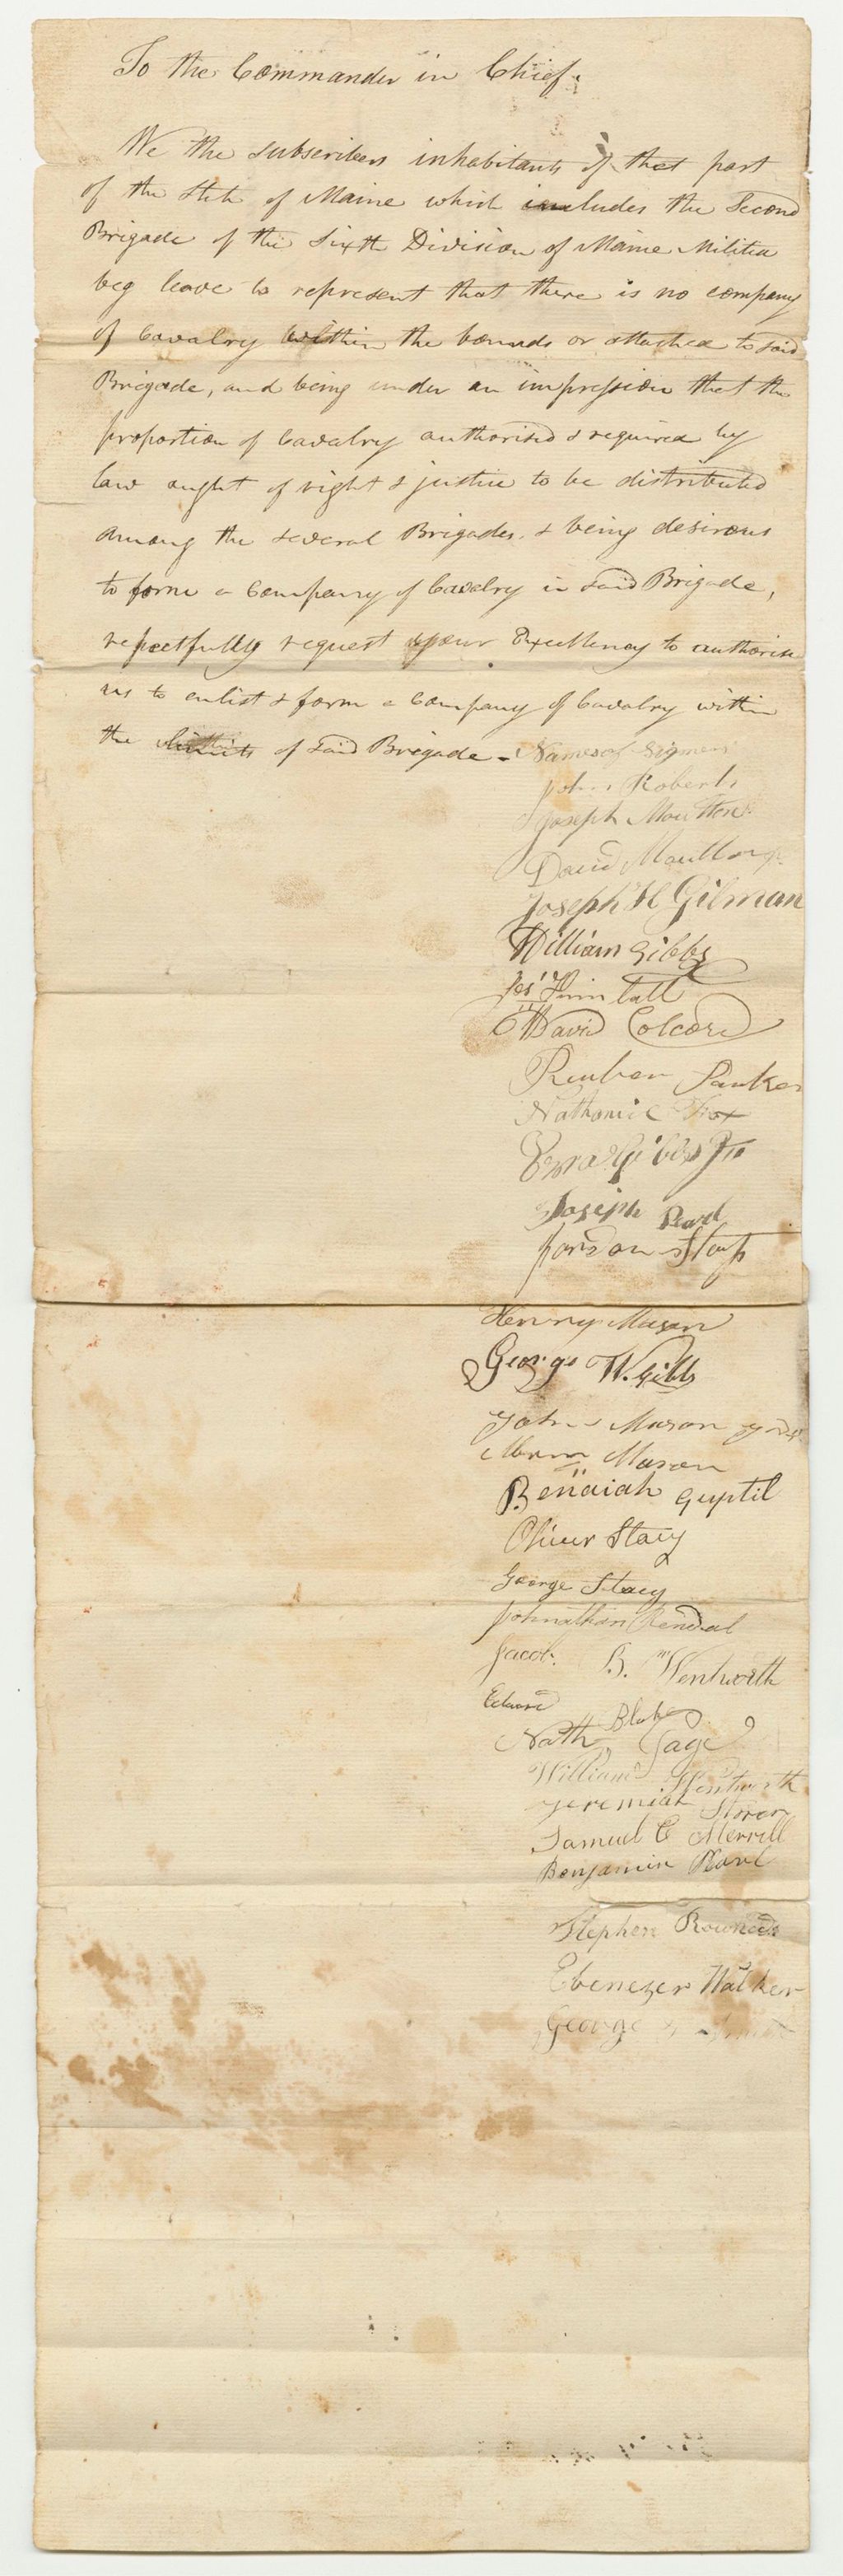 To the Commander in Chief.
We the subscribers inhabitants of that part
of the State of Maine which includes the Second
Brigade of the Sixth Division of Maine Militia
beg leave to represent that there is no company
of Cavalry within the bounds or attached to said
Brigade, and being under an impression that the
proportion of Cavalry authorised & required by
law ought of right & justice to be distributed
among the several Brigades. & being desirous
to form a Company of Cavalry in said Brigade,
respectfully request your Excellency to authorise
us to enlist & form a Company of Cavalry within
the limits of said Brigade -
Names of Signers
John Roberts
Joseph Moulton
David Moulton
Joseph H Gilman
William Gibbs
David Colcord
Reuben Parker
Nathaniel Fox
Ezra Gibbs Jr
Joseph Pearl
Henry Mason
George W. Gibbs
John Mason
Mason
Benaiah Guptil
Oliver Stacy
George Stacy
Johnathan Rendal
Jacob B. Wentworth
Edward Blake
Nath. Gage
William Wentworth
Jeremiah Storer
Samuel C Merrill
Benjamin Pearl
Stephen
Ebenezer Walker
George